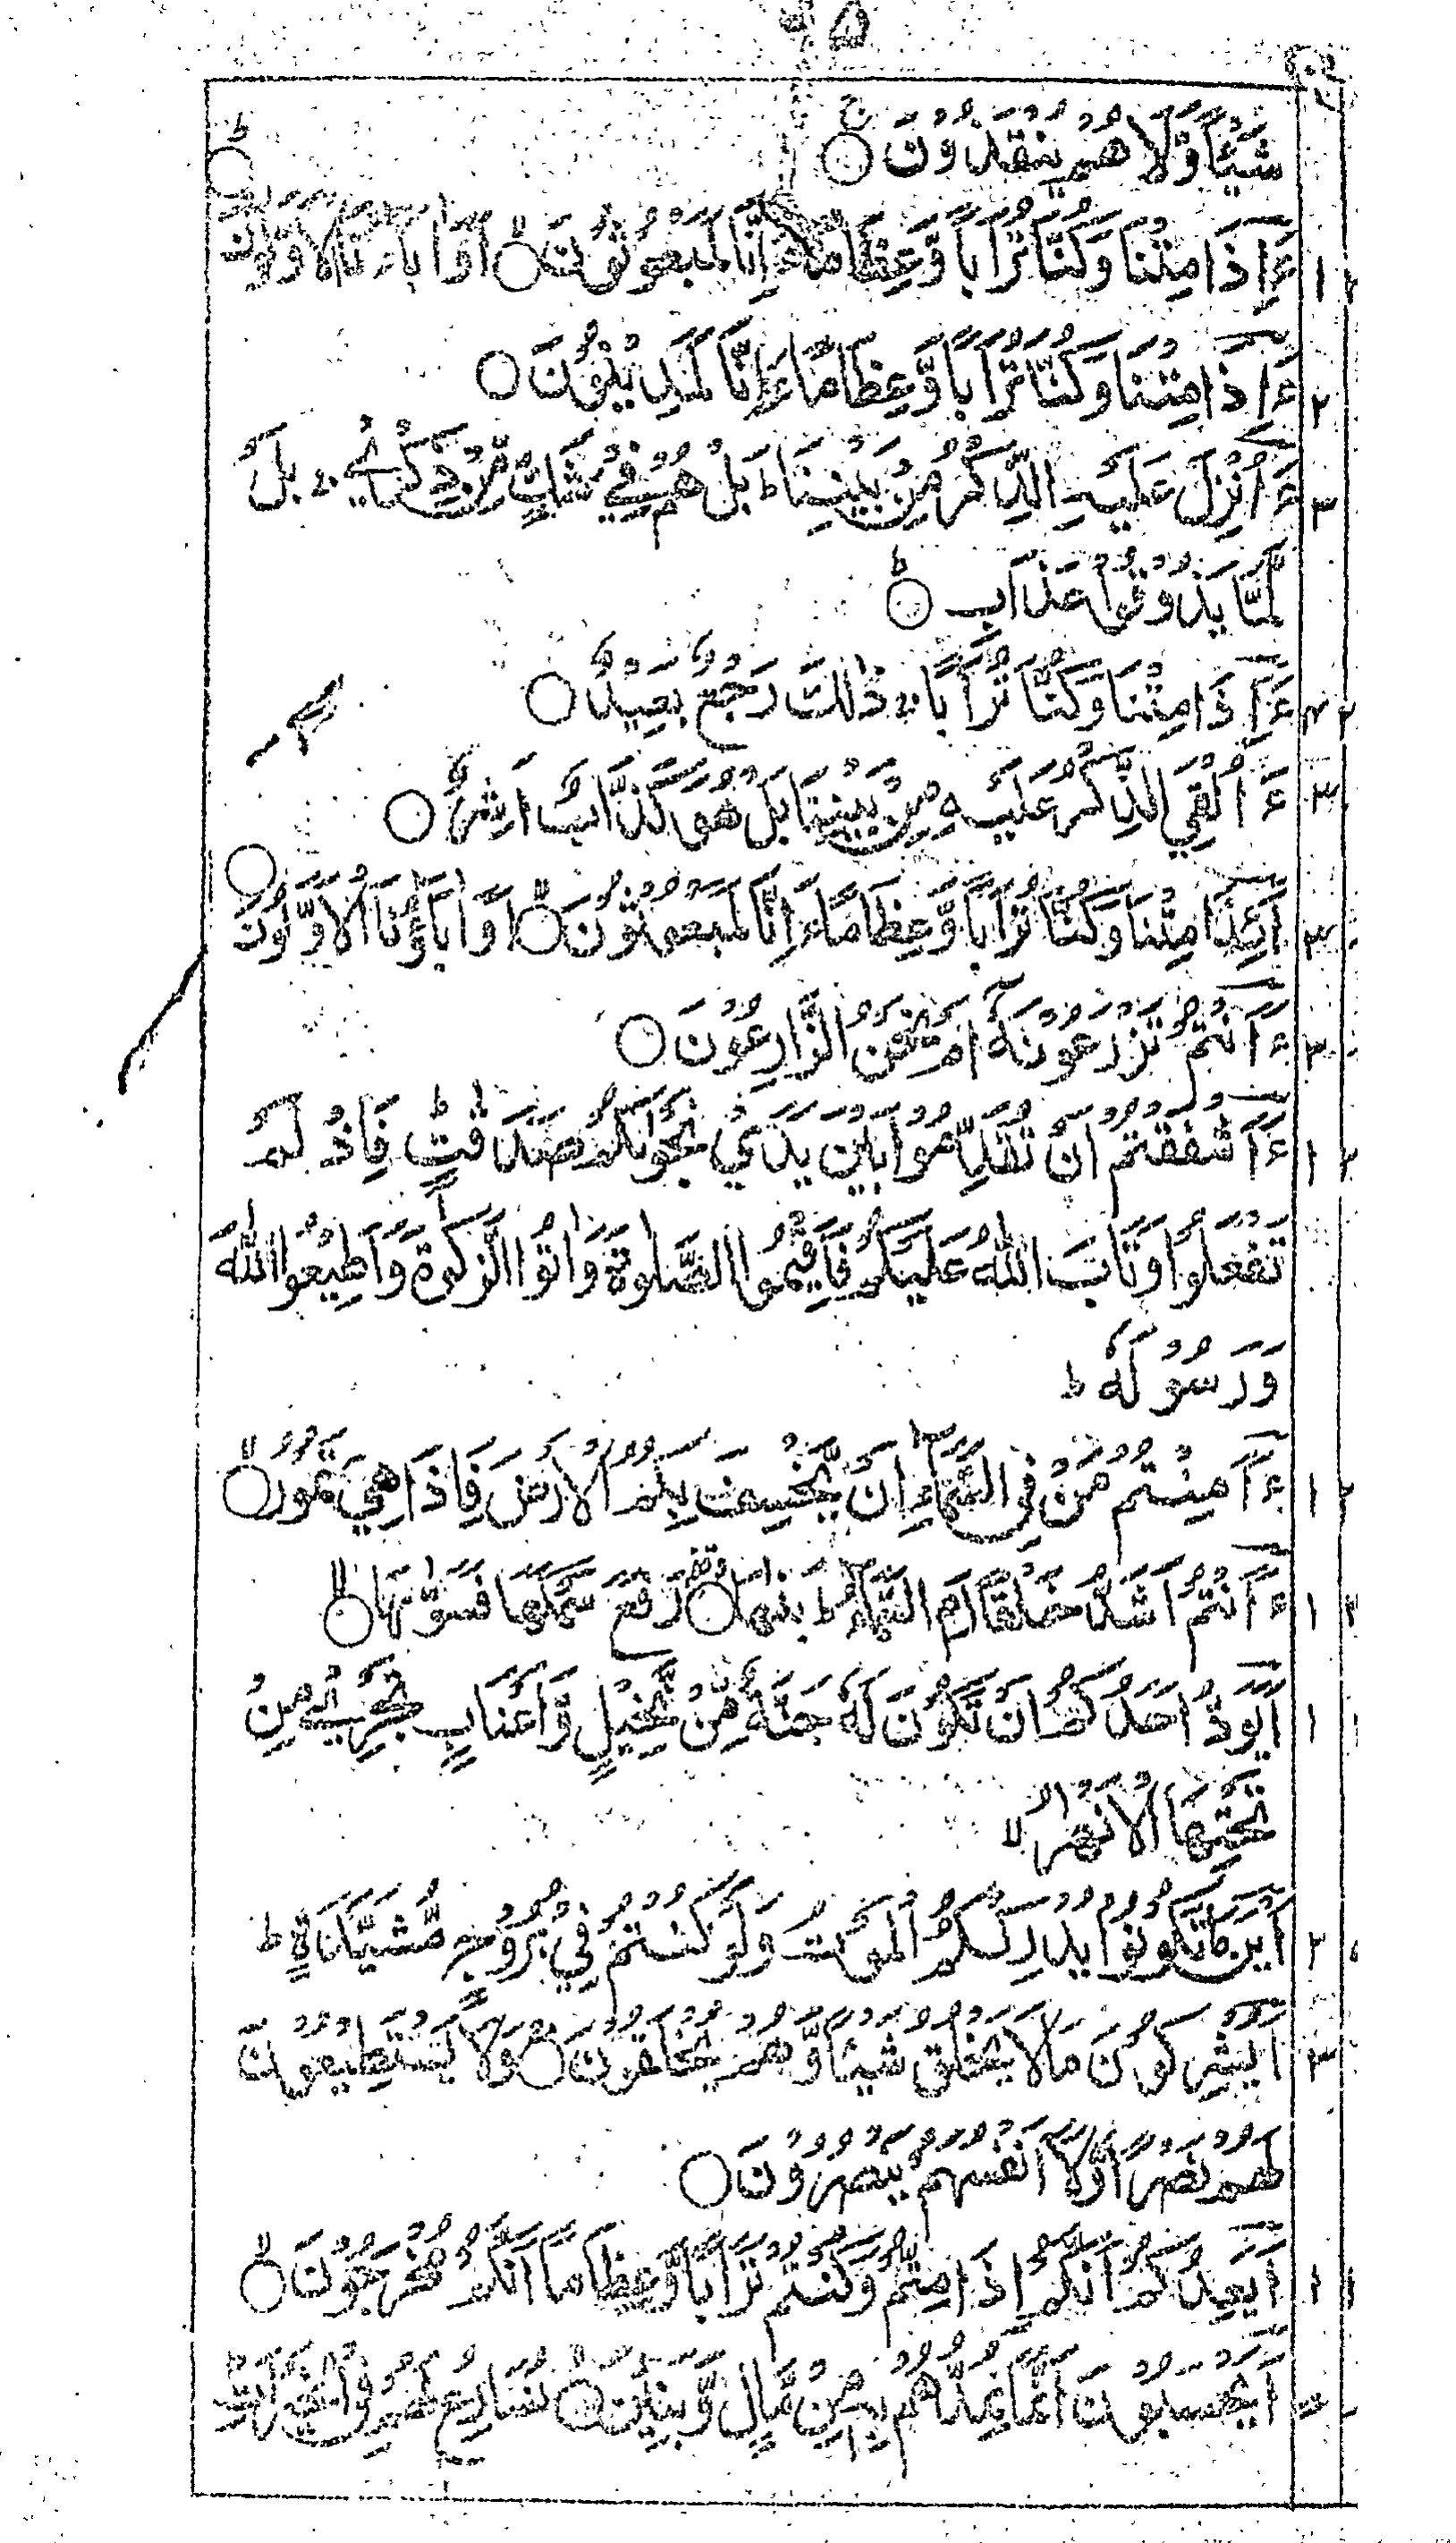 شَيْئًا وَّلَا هُمْ يُنْقَذُوْنَ ۝
ءَاِذَا مِتْنَا وَكُنَّا تُرَابًا وَّعِظَامًا ءَاِنَّا لَمَبْعُوْثُوْنَ ۝ اَوَ اٰبَآؤُنَا الْاَوَّلُوْنَ ۝ ١
ءَاِذَا مِتْنَا وَكُنَّا تُرَابًا وَّعِظَامًا ءَاِنَّا لَمَدِيْنُوْنَ ۝ ٢
ءَاُنْزِلَ عَلَيْهِ الذِّكْرُ مِنْ بَيْنِنَا ط بَلْ هُمْ فِيْ شَكٍّ مِّنْ ذِكْرِيْ ج بَلْ ٣
لَمَّا يَذُوْقُوْا عَذَابِ ۝ ط
ءَاِذَا مِتْنَا وَكُنَّا تُرَابًا ج ذٰلِكَ رَجْعٌ بَعِيْدٌ ۝
ءَاُلْقِيَ الذِّكْرُ عَلَيْهِ مِنْ بَيْنِنَا بَلْ هُوَ كَذَّابٌ اَشِرٌ ۝ ٣
اَئِذَا مِتْنَا وَكُنَّا تُرَابًا وَّعِظَامًا ءَاِنَّا لَمَبْعُوْثُوْنَ ۝ اَوَ اٰبَآؤُنَا الْاَوَّلُوْنَ ۝ ٣
ءَاَنْتُمْ تَزْرَعُوْنَهٗٓ اَمْ نَحْنُ الزّٰرِعُوْنَ ۝ ٣
ءَاَشْفَقْتُمْ اَنْ تُقَدِّمُوْا بَيْنَ يَدَيْ نَجْوٰىكُمْ صَدَقٰتٍ ط فَاِذْ لَمْ ١
تَفْعَلُوْا وَتَابَ اللّٰهُ عَلَيْكُمْ فَاَقِيْمُوا الصَّلٰوةَ وَاٰتُوا الزَّكٰوةَ وَاَطِيْعُوا اللّٰهَ
وَرَسُوْلَهٗ ط
ءَاَمِنْتُمْ مَّنْ فِى السَّمَآءِ اَنْ يَّخْسِفَ بِكُمُ الْاَرْضَ فَاِذَا هِيَ تَمُوْرُ ۝ ١
ءَاَنْتُمْ اَشَدُّ خَلْقًا اَمِ السَّمَآءُ ط بَنٰهَا ۝ رَفَعَ سَمْكَهَا فَسَوّٰىهَا ۝ ١
اَيَوَدُّ اَحَدُكُمْ اَنْ تَكُوْنَ لَهٗ جَنَّةٌ مِّنْ نَّخِيْلٍ وَّاَعْنَابٍ تَجْرِيْ مِنْ ١
تَحْتِهَا الْاَنْهٰرُ لا
اَيْنَ مَا تَكُوْنُوْا يُدْرِكْكُّمُ الْمَوْتُ وَلَوْ كُنْتُمْ فِيْ بُرُوْجٍ مُّشَيَّدَةٍ ط ٢
اَيُشْرِكُوْنَ مَا لَا يَخْلُقُ شَيْئًا وَّهُمْ يُخْلَقُوْنَ ۝ وَلَا يَسْتَطِيْعُوْنَ ٣
لَهُمْ نَصْرًا وَّلَآ اَنْفُسَهُمْ يَنْصُرُوْنَ ۝
اَيَعِدُكُمْ اَنَّكُمْ اِذَا مِتُّمْ وَكُنْتُمْ تُرَابًا وَّعِظَامًا اَنَّكُمْ مُّخْرَجُوْنَ ۝ ١
اَيَحْسَبُوْنَ اَنَّمَا نُمِدُّهُمْ بِهٖ مِنْ مَّالٍ وَّبَنِيْنَ ۝ نُسَارِعُ لَهُمْ فِى الْخَيْرٰتِ ط